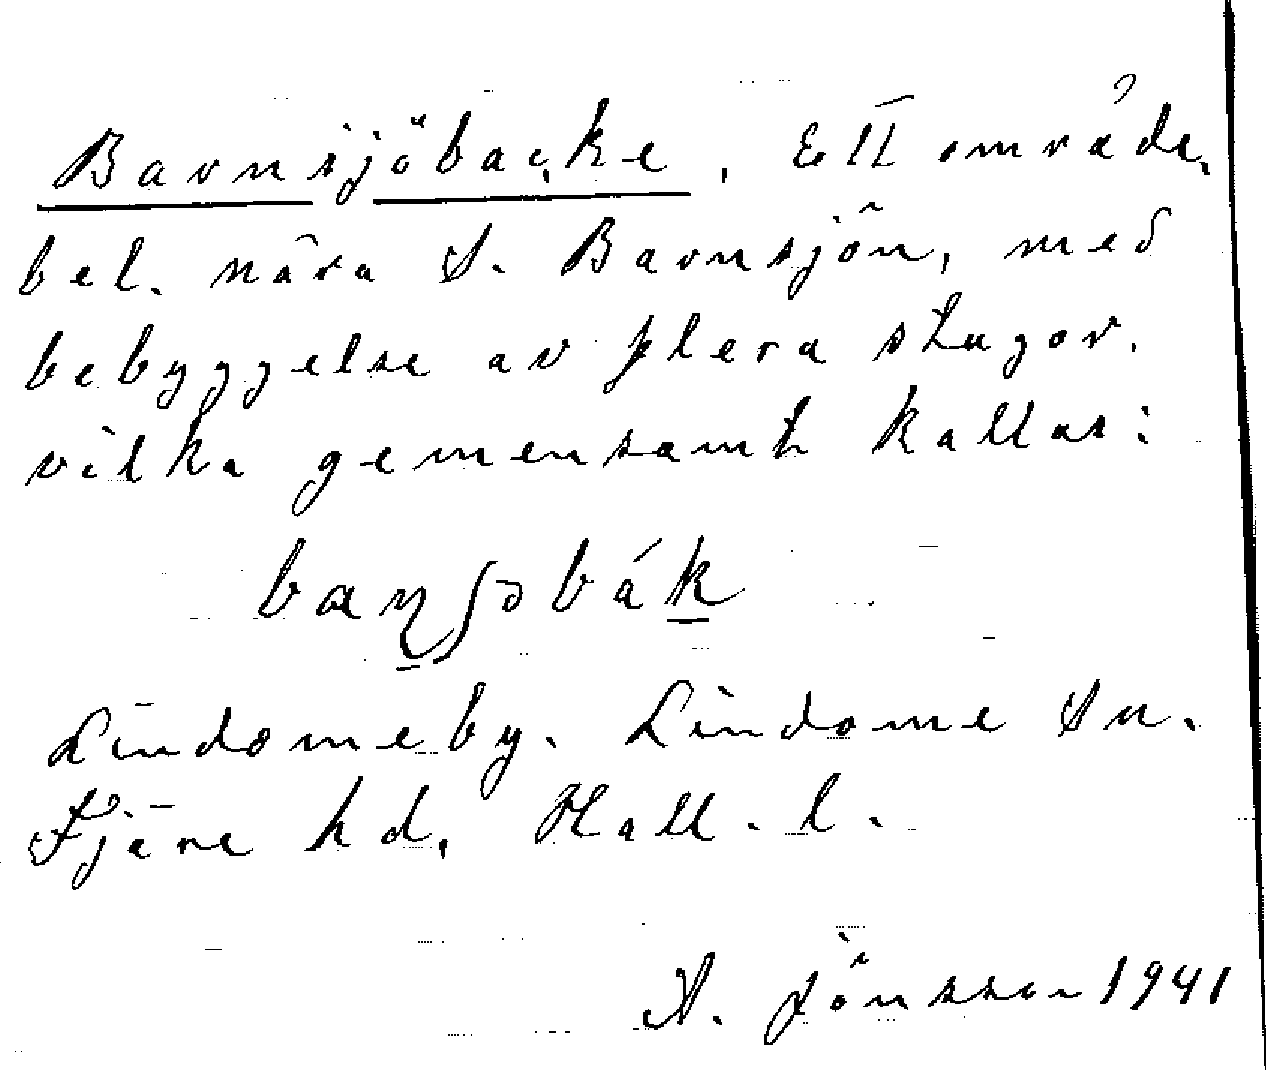 Barnsjöbacke, Ett område,
bel. nära S. Barnsjön, med
bebyggelse av flera stugor.
vilka gemensamt kallas:
Lindome by. Lindome sn.
Fjäre hd, Hall. l.
A. Jönsson 1941